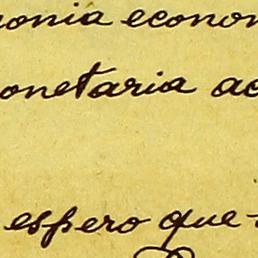 onia econom
onetaria ac
espero que